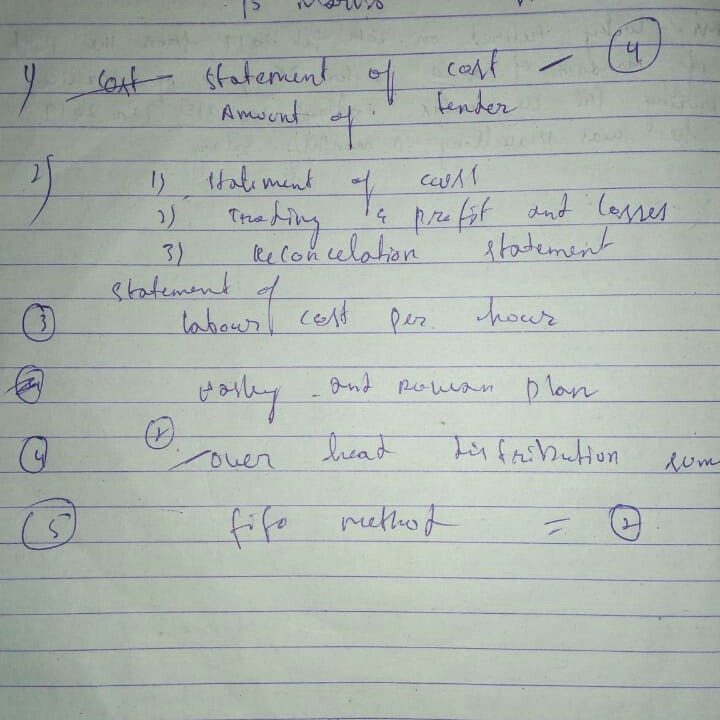 15 Marks
1) Statement of cost — 4
Amount of tender
2) 1) Statement of cost
2) Trading & profit and losses
3) Reconcelation statement
Statement of
3 labour cost per hour
and rowan plan
4 2 over head distribution sum
5 fifo method = 2